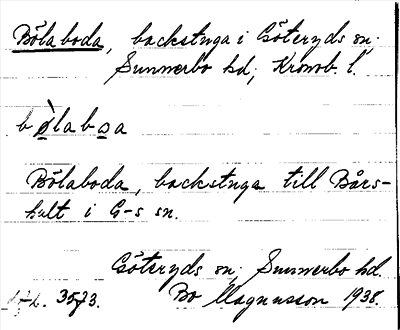 Bölaboda, backstuga i Göteryds sn;
Sunnerbo hd; Kronob. l.
bòlaboa
Bölaboda, backstuga till Bårs-
hult i G-s sn.
Göteryds sn; Sunnerbo hd.
Bo Magnusson 1938.